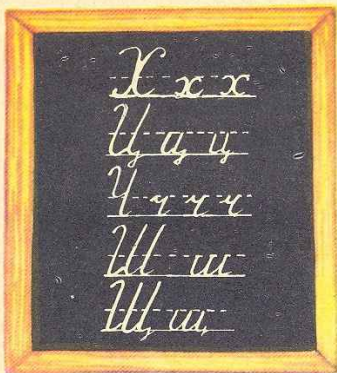 Х х х
Ц ц ц
Ч ч ч ч
Ш ш
Щ щ